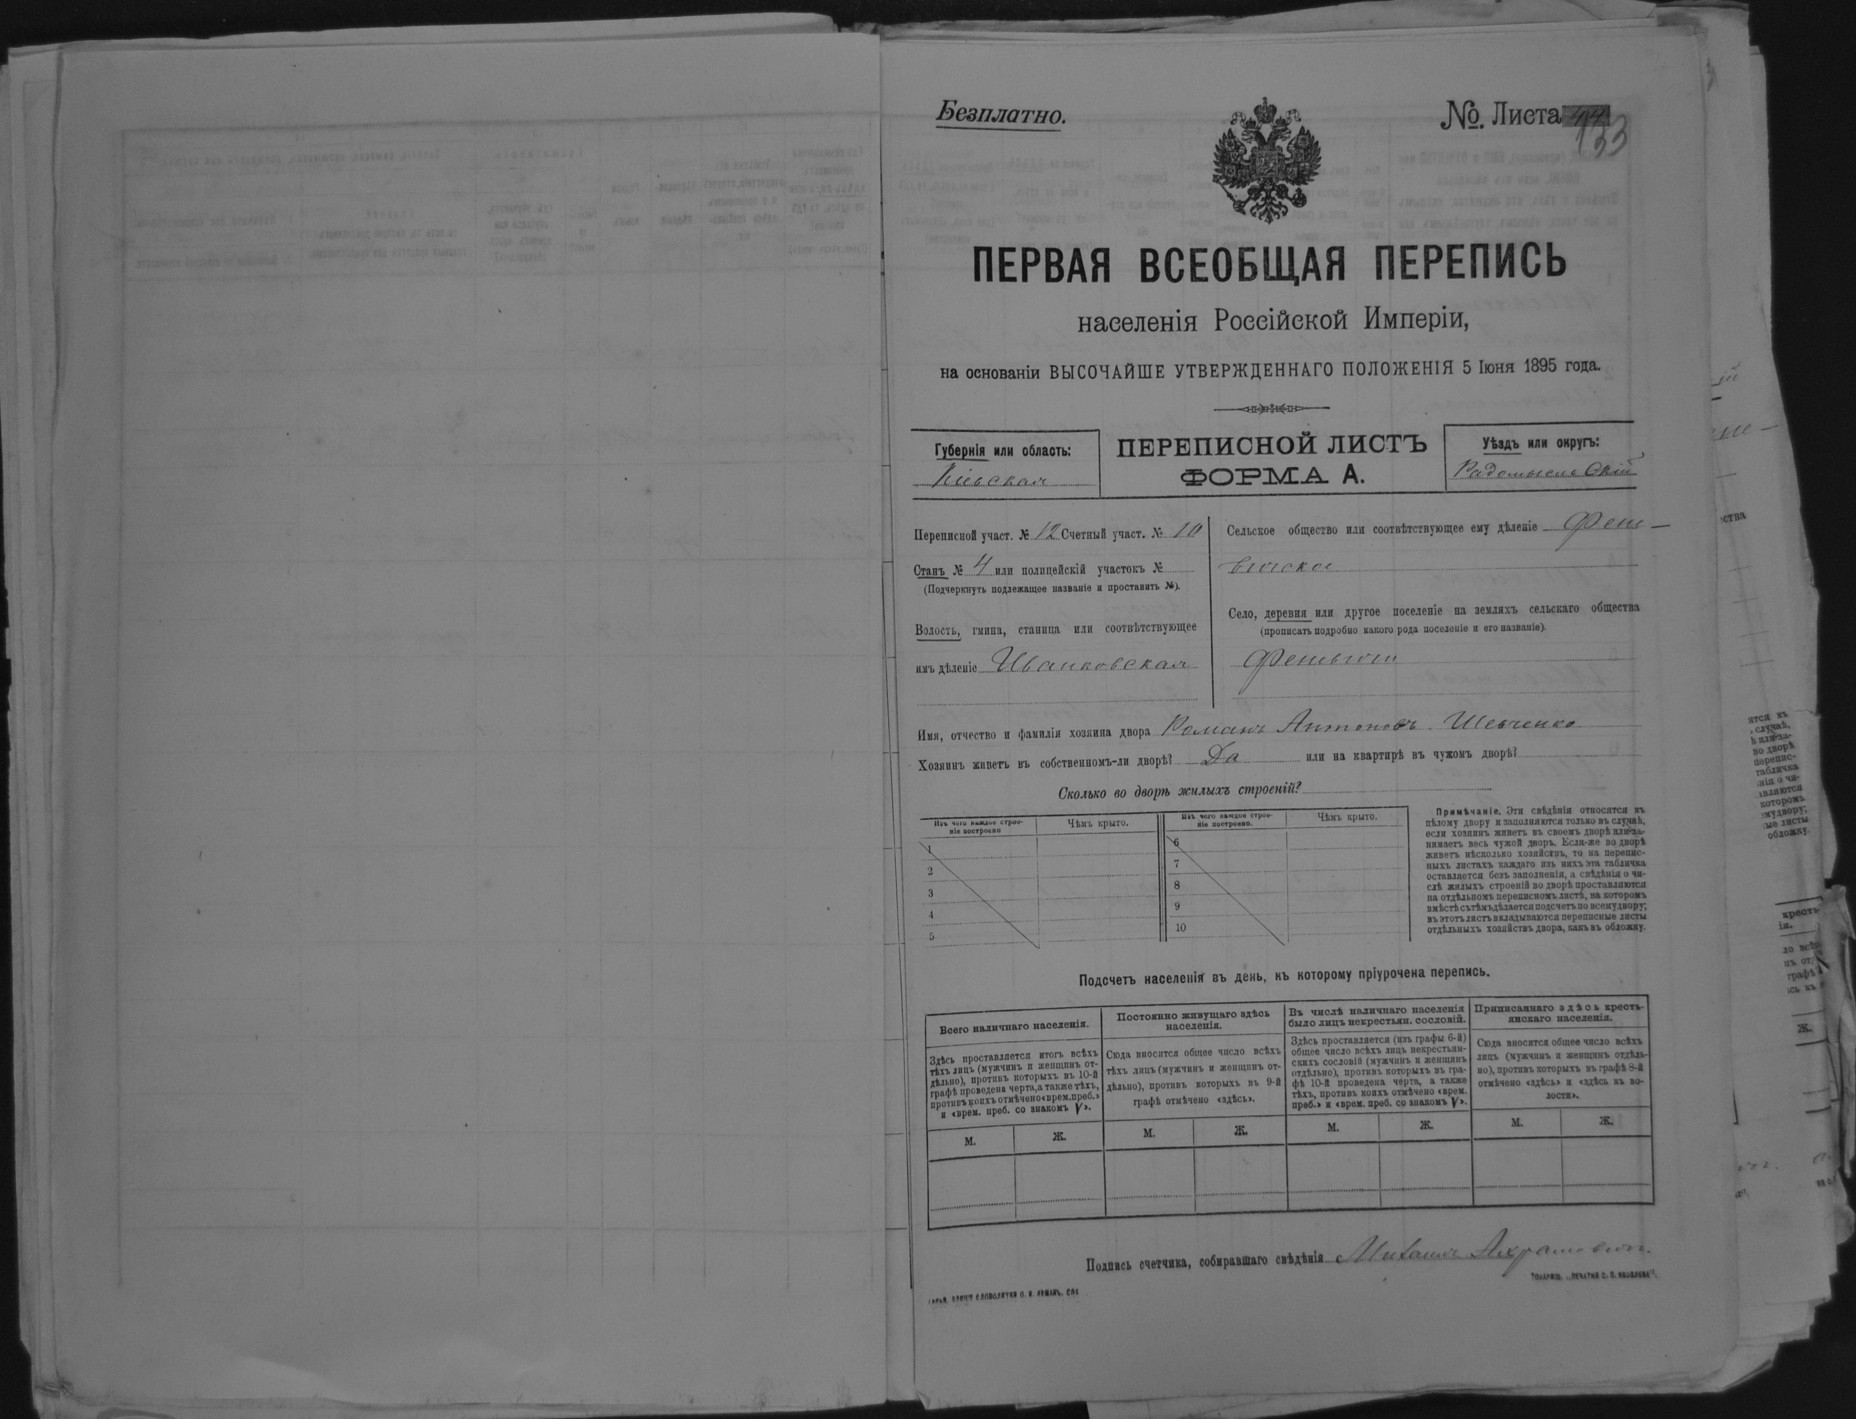 Безплатно.
№. Листа 44
133
ПЕРВАЯ ВСЕОБЩАЯ ПЕРЕПИСЬ
населенія Россійской Имперіи,
на основаніи ВЫСОЧАЙШЕ УТВЕРЖДЕННАГО ПОЛОЖЕНІЯ 5 Іюня 1895 года.
Губернія или область:
Кіевская
ПЕРЕПИСНОЙ ЛИСТЪ
ФОРМА А.
Уѣздъ или округъ:
Радомысльскій
Переписной участ. № 12 Счетный участ. № 10
Станъ № 4 или полицейскій участокъ №
(Подчеркнуть подлежащее названіе и проставить №).
Волость, гмина, станица или соотвѣтствующее
имъ дѣленіе Иванковская
Сельское общество или соотвѣтствующее ему дѣленіе
Село, деревня или другое поселеніе на земляхъ сельскаго общества
(прописать подробно какого рода поселеніе и его названіе).
Имя, отчество и фамилія хозяина двора Романъ Антоновъ Шевченко
Хозяинъ живетъ въ собственномъ-ли дворѣ? Да или на квартирѣ въ чужомъ дворѣ?
Сколько во дворѣ жилыхъ строеній?
Изъ чего каждое строе-
ніе построено
Чѣмъ крыто.
1
2
3
4
5
Изъ чего каждое строе-
ніе построено.
Чѣмъ крыто.
6
7
8
9
10
Примѣчаніе. Эти свѣдѣнія относятся къ
цѣлому двору и заполняются только въ случаѣ,
если хозяинъ живетъ въ своемъ дворѣ или за-
нимаетъ весь чужой дворъ. Если-же во дворѣ
живетъ нѣсколько хозяйствъ, то на перепис-
ныхъ листахъ каждаго изъ нихъ эта табличка
оставляется безъ заполненія, а свѣдѣнія о чи-
слѣ жилыхъ строеній во дворѣ проставляются
на отдѣльномъ переписномъ листѣ, на которомъ
вмѣстѣ съ тѣмъ дѣлается подсчетъ по всему двору;
въ этотъ листъ вкладываются переписные листы
отдѣльныхъ хозяйствъ двора, какъ въ обложку.
Подсчетъ населенія въ день, къ которому пріурочена перепись.
Всего наличнаго населенія.
Здѣсь проставляется итогъ всѣхъ
тѣхъ лицъ (мужчинъ и женщинъ от-
дѣльно), противъ которыхъ въ 10-й
графѣ проведена черта, а также тѣхъ,
противъ коихъ отмѣчено «врем. преб.»
и «врем. преб. со знакомъ V».
М.
Ж.
Постоянно живущаго здѣсь
населенія.
Сюда вносится общее число всѣхъ
тѣхъ лицъ (мужчинъ и женщинъ от-
дѣльно), противъ которыхъ въ 9-й
графѣ отмѣчено «здѣсь».
М.
Ж.
Въ числѣ наличнаго населенія
было лицъ некрестьян. сословій.
Здѣсь проставляется (изъ графы 6-й)
общее число всѣхъ лицъ некрестьян-
скихъ сословій (мужчинъ и женщинъ
отдѣльно), противъ которыхъ въ гра-
фѣ 10-й проведена черта, а также
тѣхъ, противъ коихъ отмѣчено «врем.
преб.» и «врем. преб. со знакомъ V».
М.
Ж.
Приписаннаго здѣсь кресть-
янскаго населенія.
Сюда вносится общее число всѣхъ
лицъ (мужчинъ и женщинъ отдѣль-
но), противъ которыхъ въ графѣ 8-й
отмѣчено «здѣсь» и «здѣсь къ во-
лости».
М.
Ж.
Подпись счетчика, собиравшаго свѣдѣнія